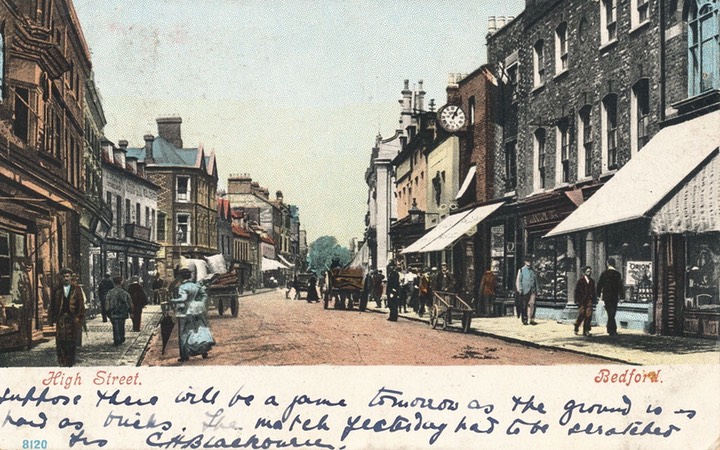 High Street. Bedford.
suppose there will be a game tomorrow as the ground is as
hard as bricks. The match yesterday had to be scratched
8120 Yrs C H Blackbourn.